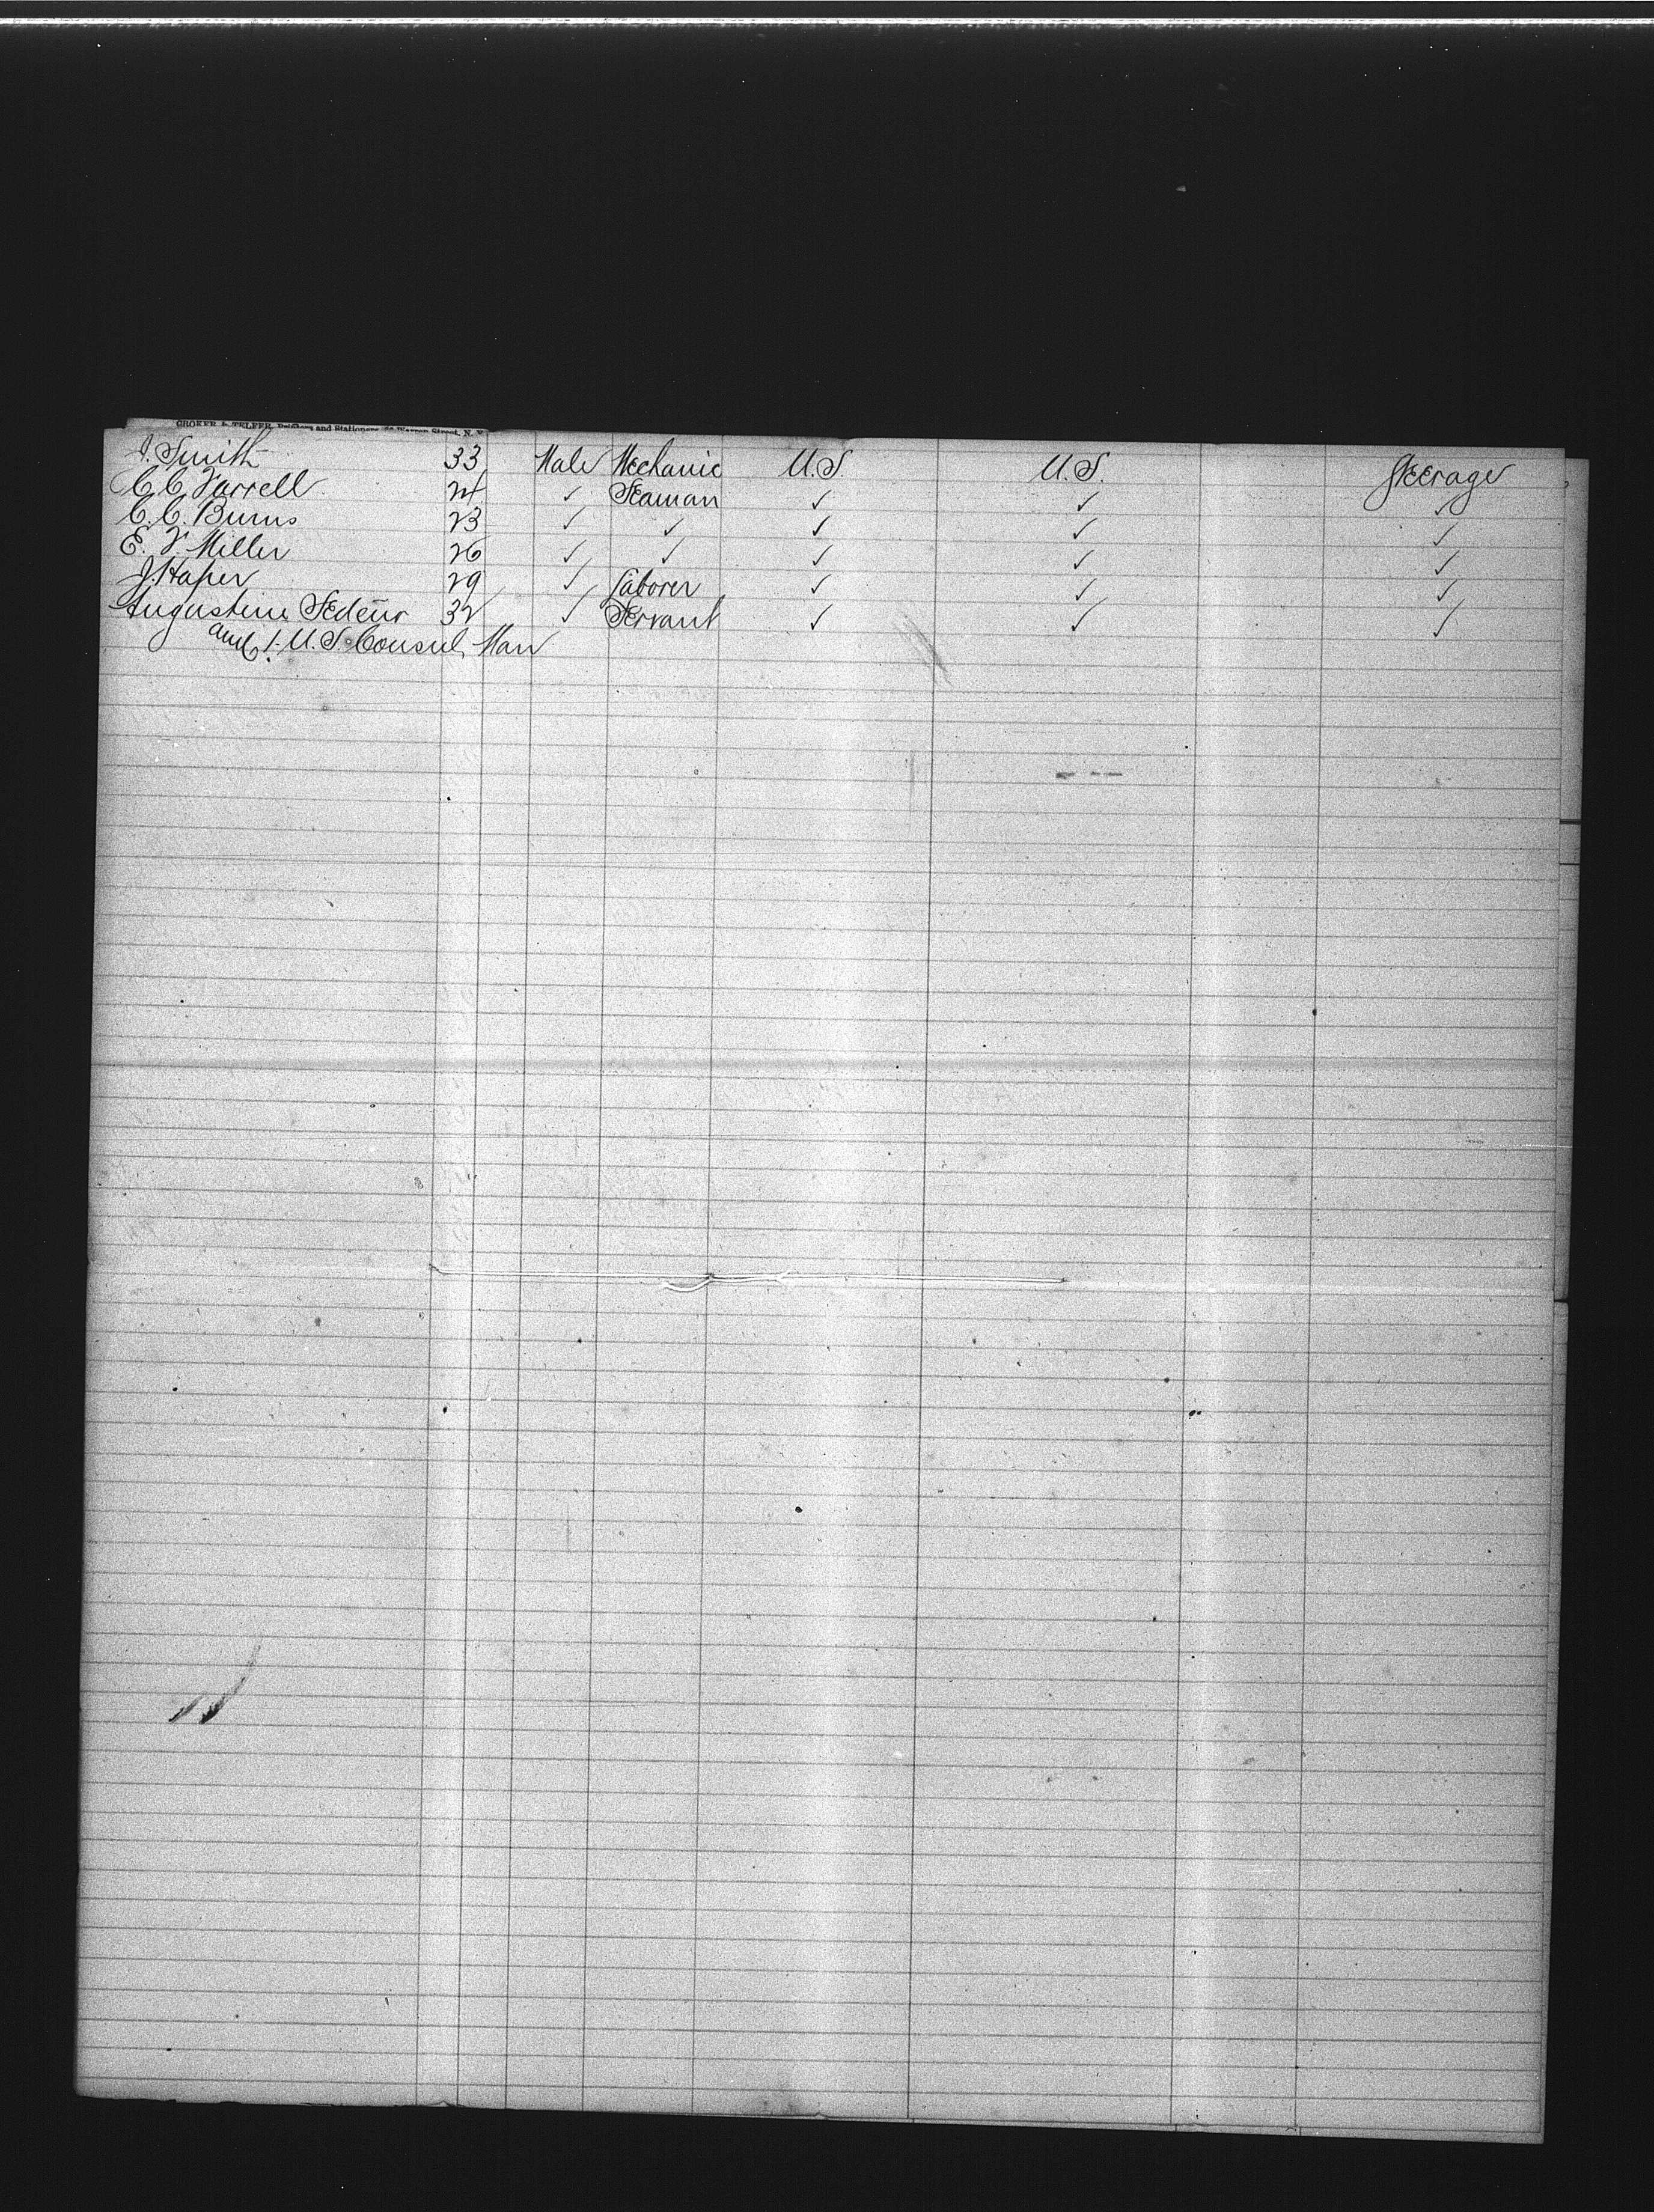 CROKER & TELFER, Printers and Stationers, Warren Street, N. Y.
J. Smith 33 Male Mechanic U.S. U.S. Steerage
C. C. Farrell 24 ✓ Seaman ✓ ✓ ✓
C. C. Burns 23 ✓ ✓ ✓ ✓ ✓
E. F. Miller 26 ✓ ✓ ✓ ✓ ✓
J. Hafer 29 ✓ Laborer ✓ ✓ ✓
Augustine Sedeño 32 ✓ Servant ✓ ✓ ✓
1. U.S. Consul Man